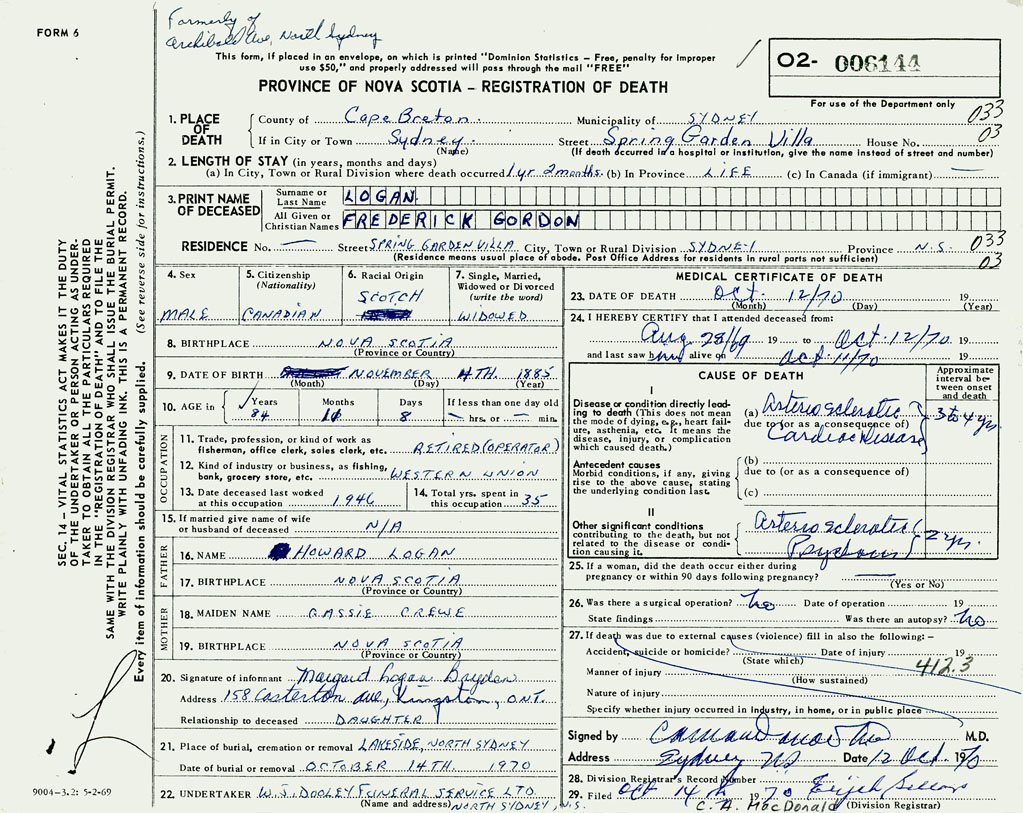 FORM 6
Formerly of
Archibald Ave, North Sydney
This form, if placed in an envelope, on which is printed "Dominion Statistics – Free, penalty for improper
use $50," and properly addressed will pass through the mail "FREE"
PROVINCE OF NOVA SCOTIA – REGISTRATION OF DEATH
02- 006144
For use of the Department only
033
03
1. PLACE OF DEATH
County of Cape Breton Municipality of SYDNEY
If in City or Town Sydney Street Spring Garden Villa House No.
(Name) (If death occurred in a hospital or institution, give the name instead of street and number)
2. LENGTH OF STAY (in years, months and days)
(a) In City, Town or Rural Division where death occurred 1 yr 2 months. (b) In Province LIFE (c) In Canada (if immigrant) —
3. PRINT NAME OF DECEASED
Surname or Last Name LOGAN
All Given or Christian Names FREDERICK GORDON
RESIDENCE No. — Street SPRING GARDEN VILLA City, Town or Rural Division SYDNEY Province N.S. 033
(Residence means usual place of abode. Post Office Address for residents in rural parts not sufficient) 03
4. Sex MALE
5. Citizenship (Nationality) CANADIAN
6. Racial Origin SCOTCH
7. Single, Married, Widowed or Divorced (write the word) WIDOWED
8. BIRTHPLACE NOVA SCOTIA
(Province or Country)
9. DATE OF BIRTH NOVEMBER 4TH. 1885
(Month) (Day) (Year)
10. AGE in Years 84 Months Days 8 If less than one day old — hrs. or — min.
OCCUPATION
11. Trade, profession, or kind of work as
fisherman, office clerk, sales clerk, etc. RETIRED (OPERATOR)
12. Kind of industry or business, as fishing,
bank, grocery store, etc. WESTERN UNION
13. Date deceased last worked at this occupation 1946
14. Total yrs. spent in this occupation 35
15. If married give name of wife
or husband of deceased N/A
FATHER
16. NAME HOWARD LOGAN
17. BIRTHPLACE NOVA SCOTIA
(Province or Country)
MOTHER
18. MAIDEN NAME CASSIE CREWE
19. BIRTHPLACE NOVA SCOTIA
(Province or Country)
20. Signature of informant Margaret Logan Bryden
Address 158 Casterton Ave, Kingston, ONT.
Relationship to deceased DAUGHTER
21. Place of burial, cremation or removal LAKESIDE, NORTH SYDNEY
Date of burial or removal OCTOBER 14TH. 1970
22. UNDERTAKER W.J. DOOLEY FUNERAL SERVICE LTD.
(Name and address) NORTH SYDNEY, N.S.
MEDICAL CERTIFICATE OF DEATH
23. DATE OF DEATH Oct. 12/70 19
(Month) (Day) (Year)
24. I HEREBY CERTIFY that I attended deceased from:
Aug 28/69 19 to Oct. 12/70 19
and last saw him alive on Oct 11/70 19
CAUSE OF DEATH
Approximate interval between onset and death
I
Disease or condition directly leading to death (This does not mean the mode of dying, e.g., heart failure, asthenia, etc. It means the disease, injury, or complication which caused death.)
(a) Arterio sclerotic 3 to 4 yrs
due to (or as a consequence of)
Cardiac Disease
Antecedent causes
Morbid conditions, if any, giving rise to the above cause, stating the underlying condition last.
(b)
due to (or as a consequence of)
(c)
II
Other significant conditions
contributing to the death, but not related to the disease or condition causing it.
Arterio sclerotic
Psychosis 2 yrs.
25. If a woman, did the death occur either during
pregnancy or within 90 days following pregnancy? —
(Yes or No)
26. Was there a surgical operation? no Date of operation 19
State findings Was there an autopsy? no
27. If death was due to external causes (violence) fill in also the following: –
Accident, suicide or homicide? Date of injury 19
(State which) 412.3
Manner of injury
(How sustained)
Nature of injury
Specify whether injury occurred in industry, in home, or in public place
Signed by M.D.
Address Sydney NS Date 12 Oct 1970
28. Division Registrar's Record Number
29. Filed Oct 14th 1970
C. A. MacDonald (Division Registrar)
SEC. 14 – VITAL STATISTICS ACT MAKES IT THE DUTY
OF THE UNDERTAKER OR PERSON ACTING AS UNDER-
TAKER TO OBTAIN ALL THE PARTICULARS REQUIRED
IN THE "REGISTRATION OF DEATH" AND TO FILE THE
SAME WITH THE DIVISION REGISTRAR WHO SHALL ISSUE THE BURIAL PERMIT.
WRITE PLAINLY WITH UNFADING INK. THIS IS A PERMANENT RECORD.
Every item of information should be carefully supplied. (See reverse side for instructions.)
9004-3.2: 5-2-69